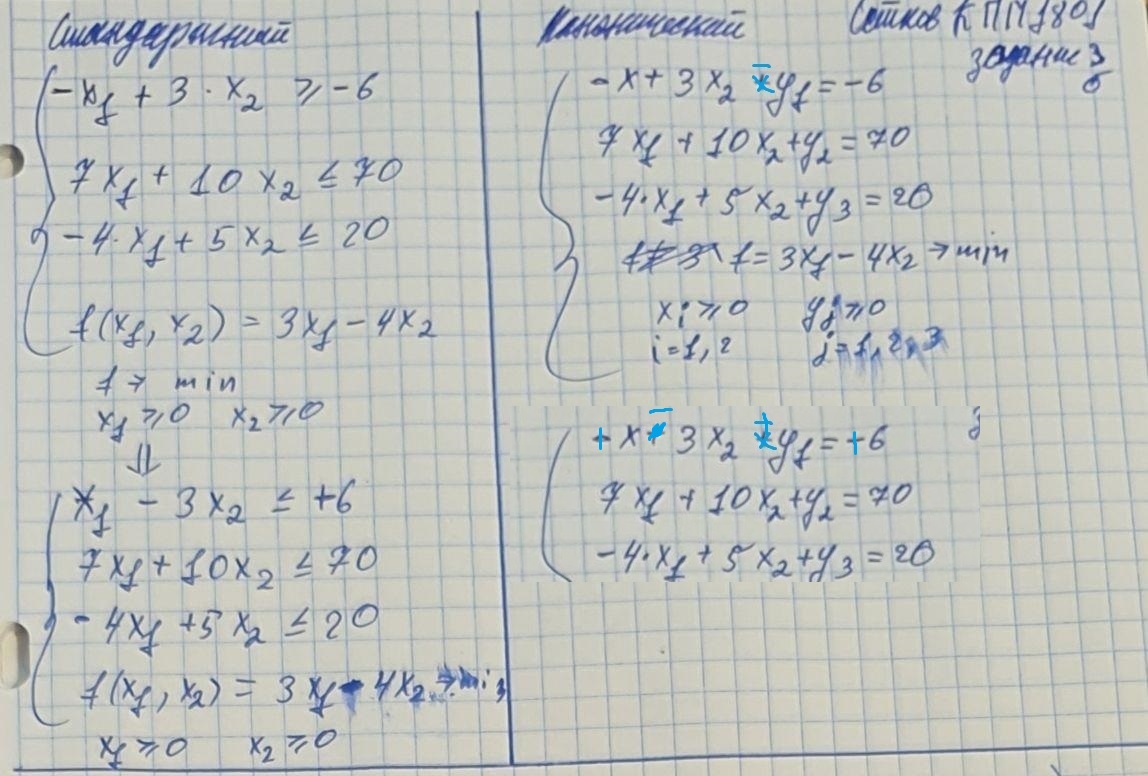 Стандартный
-x₁ + 3 · x₂ ≥ -6
7x₁ + 10x₂ ≤ 70
-4·x₁ + 5x₂ ≤ 20
f(x₁, x₂) = 3x₁ - 4x₂
f → min
x₁ ≥ 0 x₂ ≥ 0
⇓
x₁ - 3x₂ ≤ +6
7x₁ + 10x₂ ≤ 70
-4x₁ + 5x₂ ≤ 20
f(x₁, x₂) = 3x₁ - 4x₂ →
x₁ ≥ 0 x₂ ≥ 0
Канонический
К ПМ 1801
задание 3
6
-x + 3x₂ - y₁ = -6
7x₁ + 10x₂ + y₂ = 70
-4·x₁ + 5x₂ + y₃ = 20
f = 3x₁ - 4x₂ → min
xᵢ ≥ 0 yⱼ ≥ 0
i = 1, 2 j = 1, 2, 3
+x - 3x₂ + y₁ = +6
7x₁ + 10x₂ + y₂ = 70
-4·x₁ + 5x₂ + y₃ = 20